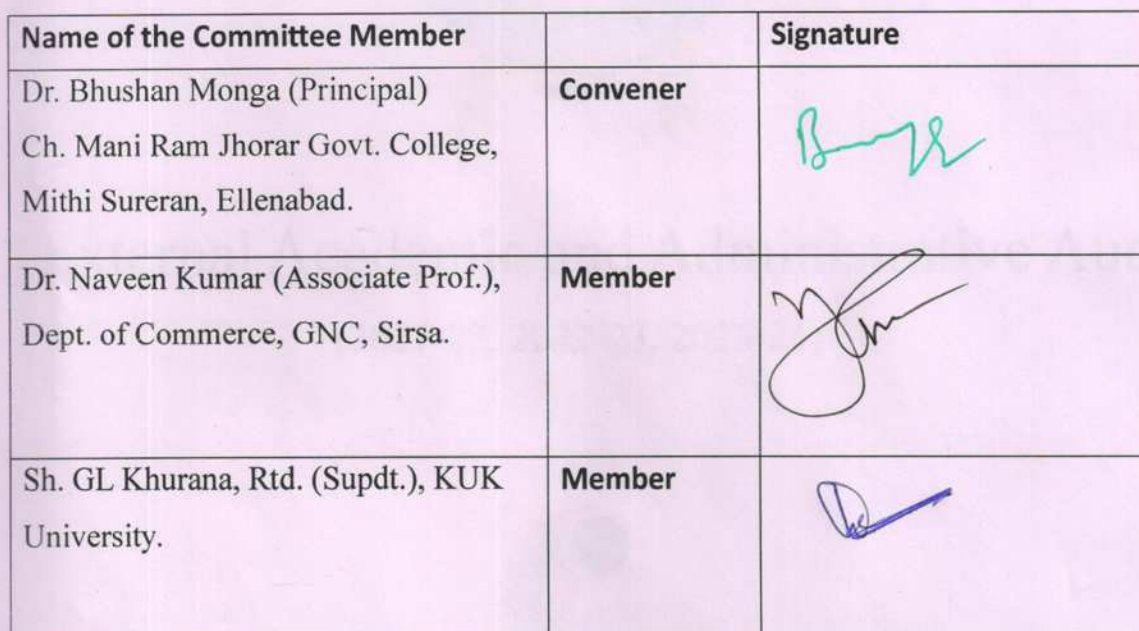 Name of the Committee Member Signature
Dr. Bhushan Monga (Principal) Convener
Ch. Mani Ram Jhorar Govt. College,
Mithi Sureran, Ellenabad.
Dr. Naveen Kumar (Associate Prof.), Member
Dept. of Commerce, GNC, Sirsa.
Sh. GL Khurana, Rtd. (Supdt.), KUK Member
University.